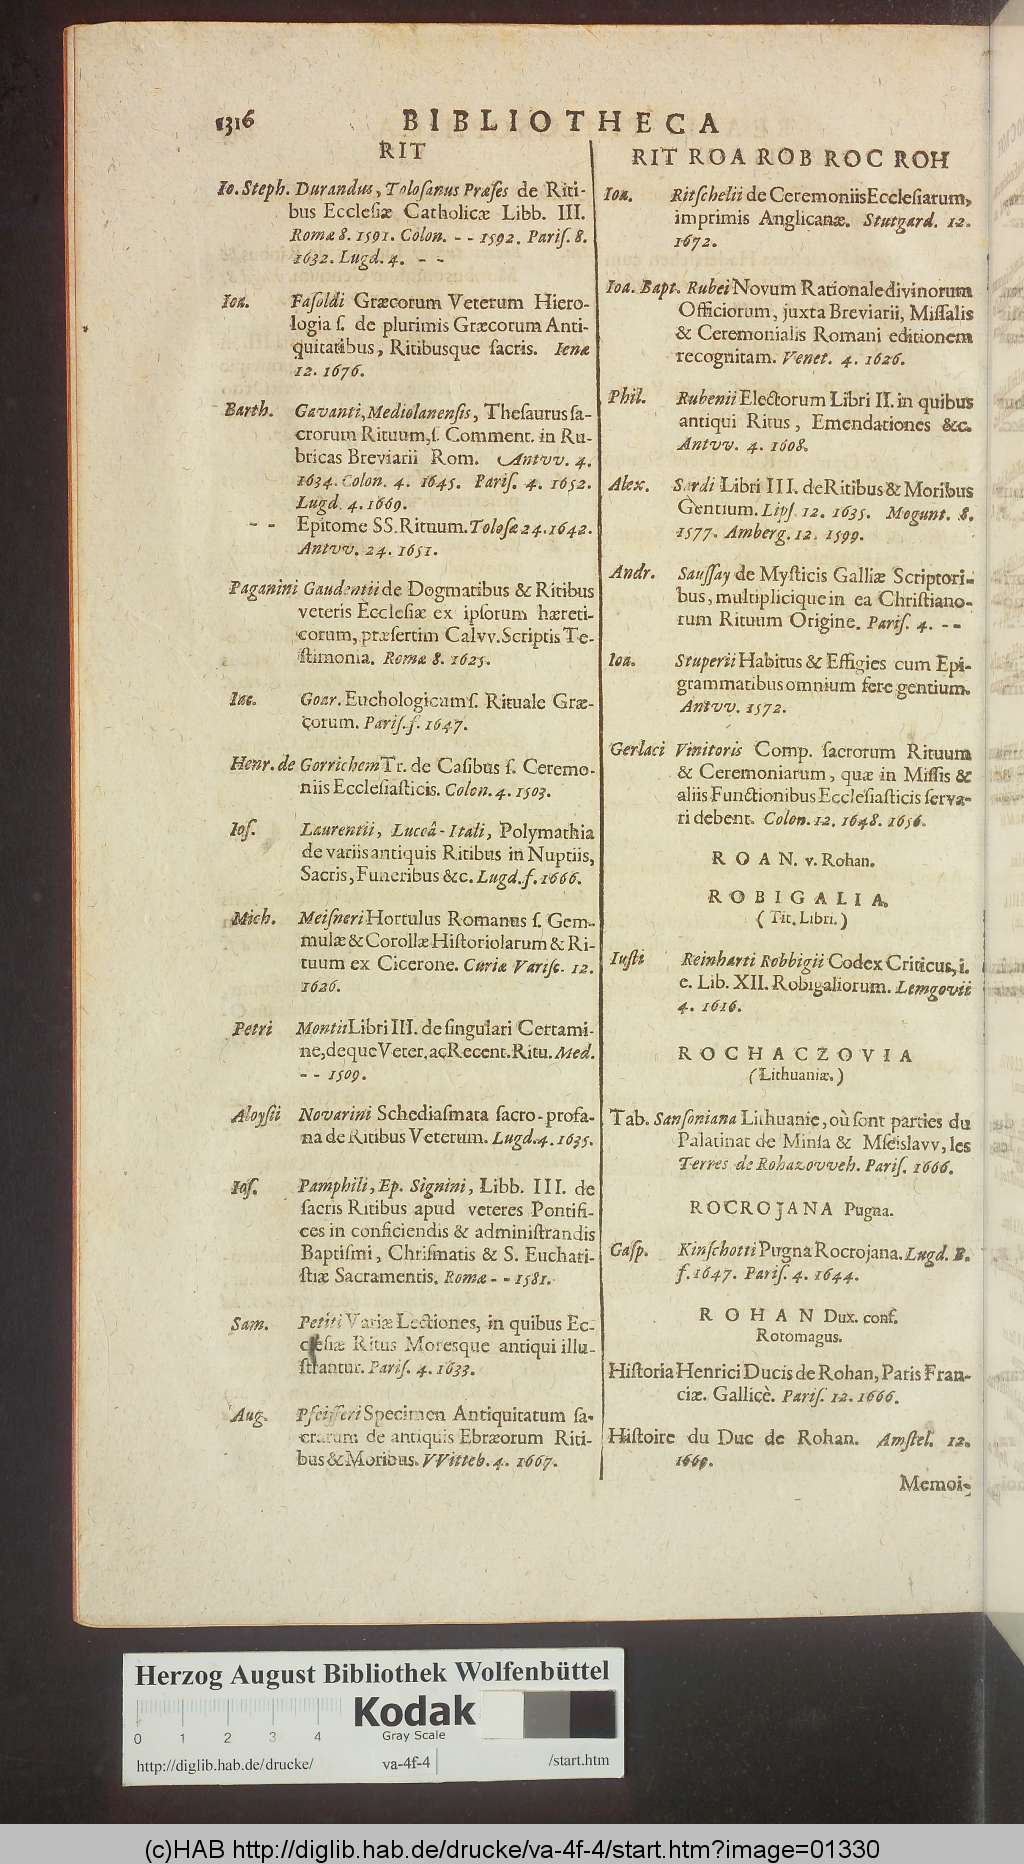 1316
BIBLIOTHECA
RIT
Io. Steph. Durandus, Tolosanus Præses de Riti-
bus Ecclesiæ Catholicæ Libb. III.
Romæ 8. 1591. Colon. - - 1592. Paris. 8.
1632. Lugd. 4. - -
Ioa. Fasoldi Græcorum Veterum Hiero-
logia s. de plurimis Græcorum Anti-
quitatibus, Ritibusque sacris. Ienæ
12. 1676.
Barth. Gavanti, Mediolanensis, Thesaurus sa-
crorum Rituum, s. Comment. in Ru-
bricas Breviarii Rom. Antvv. 4.
1634. Colon. 4. 1645. Paris. 4. 1652.
Lugd. 4. 1669.
- - Epitome SS. Rituum. Tolosæ 24. 1642.
Antvv. 24. 1651.
Paganini Gaudentii de Dogmatibus & Ritibus
veteris Ecclesiæ ex ipsorum hæreti-
corum, præsertim Calvv. Scriptis Te-
stimonia. Romæ 8. 1625.
Iac. Goar. Euchologicum s. Rituale Græ-
corum. Paris. f. 1647.
Henr. de Gorrichem Tr. de Casibus s. Ceremo-
niis Ecclesiasticis. Colon. 4. 1503.
Ios. Laurentii, Luccâ-Itali, Polymathia
de variis antiquis Ritibus in Nuptiis,
Sacris, Funeribus &c. Lugd. f. 1666.
Mich. Meisneri Hortulus Romanus s. Gem-
mulæ & Corollæ Historiolarum & Ri-
tuum ex Cicerone. Curiæ Varisc. 12.
1626.
Petri Montii Libri III. de singulari Certami-
ne, deque Veter. ac Recent. Ritu. Med.
- - 1509.
Aloysii Novarini Schediasmata sacro-profa-
na de Ritibus Veterum. Lugd. 4. 1635.
Ios. Pamphili, Ep. Signini, Libb. III. de
sacris Ritibus apud veteres Pontifi-
ces in conficiendis & administrandis
Baptismi, Chrismatis & S. Euchari-
stiæ Sacramentis. Romæ - - 1581.
Sam. Petiti Variæ Lectiones, in quibus Ec-
clesiæ Ritus Moresque antiqui illu-
strantur. Paris. 4. 1633.
Aug. Pfeifferi Specimen Antiquitatum sa-
crarum de antiquis Ebræorum Riti-
bus & Moribus. VVitteb. 4. 1667.
RIT ROA ROB ROC ROH
Ioa. Ritschelii de Ceremoniis Ecclesiarum,
imprimis Anglicanæ. Stutgard. 12.
1672.
Ioa. Bapt. Rubei Novum Rationale divinorum
Officiorum, juxta Breviarii, Missalis
& Ceremonialis Romani editionem
recognitam. Venet. 4. 1626.
Phil. Rubenii Electorum Libri II. in quibus
antiqui Ritus, Emendationes &c.
Antvv. 4. 1608.
Alex. Sardi Libri III. de Ritibus & Moribus
Gentium. Lips. 12. 1635. Mogunt. 8.
1577. Amberg. 12. 1599.
Andr. Saussay de Mysticis Galliæ Scriptori-
bus, multiplicique in ea Christiano-
rum Rituum Origine. Paris. 4. - -
Ioa. Stuperii Habitus & Effigies cum Epi-
grammatibus omnium fere gentium.
Antvv. 1572.
Gerlaci Vinitoris Comp. sacrorum Rituum
& Ceremoniarum, quæ in Missis &
aliis Functionibus Ecclesiasticis serva-
ri debent. Colon. 12. 1648. 1656.
ROAN. v. Rohan.
ROBIGALIA.
(Tit. Libri.)
Iusti Reinharti Robbigii Codex Criticus, i.
e. Lib. XII. Robigaliorum. Lemgovii
4. 1616.
ROCHACZOVIA
(Lithuaniæ.)
Tab. Sansoniana Lithuanie, où sont parties du
Palatinat de Minsa & Mseislavv, les
Terres de Rohazovveh. Paris. 1666.
ROCROJANA Pugna.
Gasp. Kinschotti Pugna Rocrojana. Lugd. B.
f. 1647. Paris. 4. 1644.
ROHAN Dux. conf.
Rotomagus.
Historia Henrici Ducis de Rohan, Paris Fran-
ciæ. Gallicè. Paris. 12. 1666.
Histoire du Duc de Rohan. Amstel. 12.
Memoi-
Herzog August Bibliothek Wolfenbüttel
Kodak
Gray Scale
0 1 2 3 4
http://diglib.hab.de/drucke/ va-4f-4 /start.htm
(c)HAB http://diglib.hab.de/drucke/va-4f-4/start.htm?image=01330